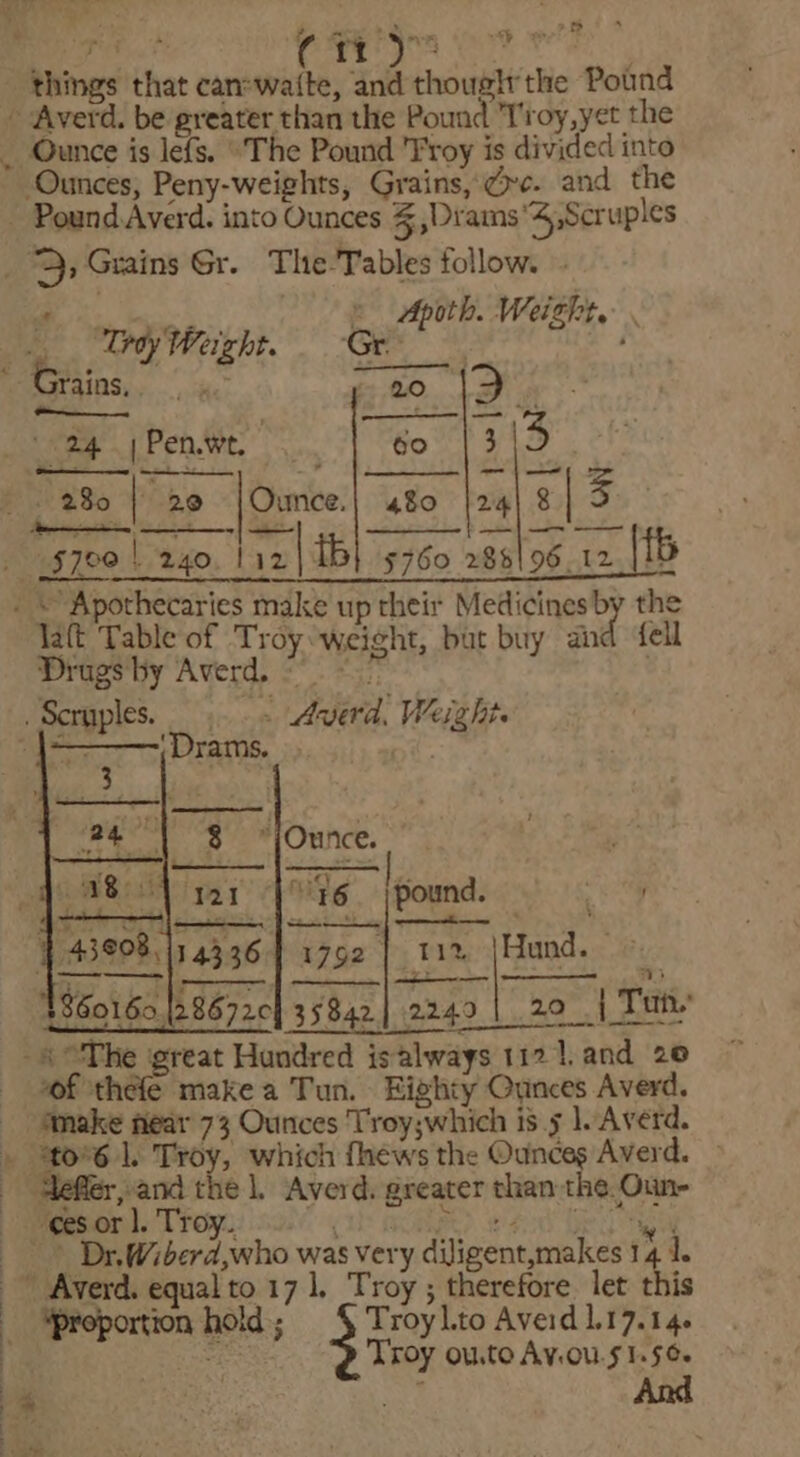 ( 11 )
things that can waſte, and though the Pound
Averd. be greater than the Pound Troy, yet the
Ounce is leſs. The Pound Troy is divided into
Ounces, Peny-weights, Grains, &c. and the
Pound Averd. into Ounces ℥, Drams ʒ, Scruples
℈, Grains Gr. The Tables follow.
Apoth. Weight.
Troy Weight. Gr.
Grains. 20 | ℈
24 | Pen.wt. 60 | 3 | ʒ
280 | 20 | Ounce. 480 | 24 | 8 | ℥
5700 | 240. | 12 | ℔ 5760 288 | 96 12 | ℔
Apothecaries make up their Medicines by the
laſt Table of Troy weight, but buy and ſell
Drugs by Averd.
Scruples. Averd. Weight.
Drams.
3
24 | 8 | Ounce.
18 | 121 | 16 | pound.
43008, | 14336 | 1792 | 112 | Hund.
860160 | 286720 | 35842 | 2240 | 20 | Tun.
The great Hundred is always 112 l. and 20
of theſe make a Tun. Eighty Ounces Averd.
make near 73 Ounces Troy; which is 5 l. Averd.
to 6 l. Troy, which ſhews the Ounces Averd.
leſſer, and the l. Averd. greater than the Oun-
ces or l. Troy.
Dr. Wiberd, who was very diligent, makes 14 l.
Averd. equal to 17 l. Troy; therefore let this
proportion hold; { Troy l. to Averd l. 17.14.
Troy ou. to Av. ou. 51.56.
And